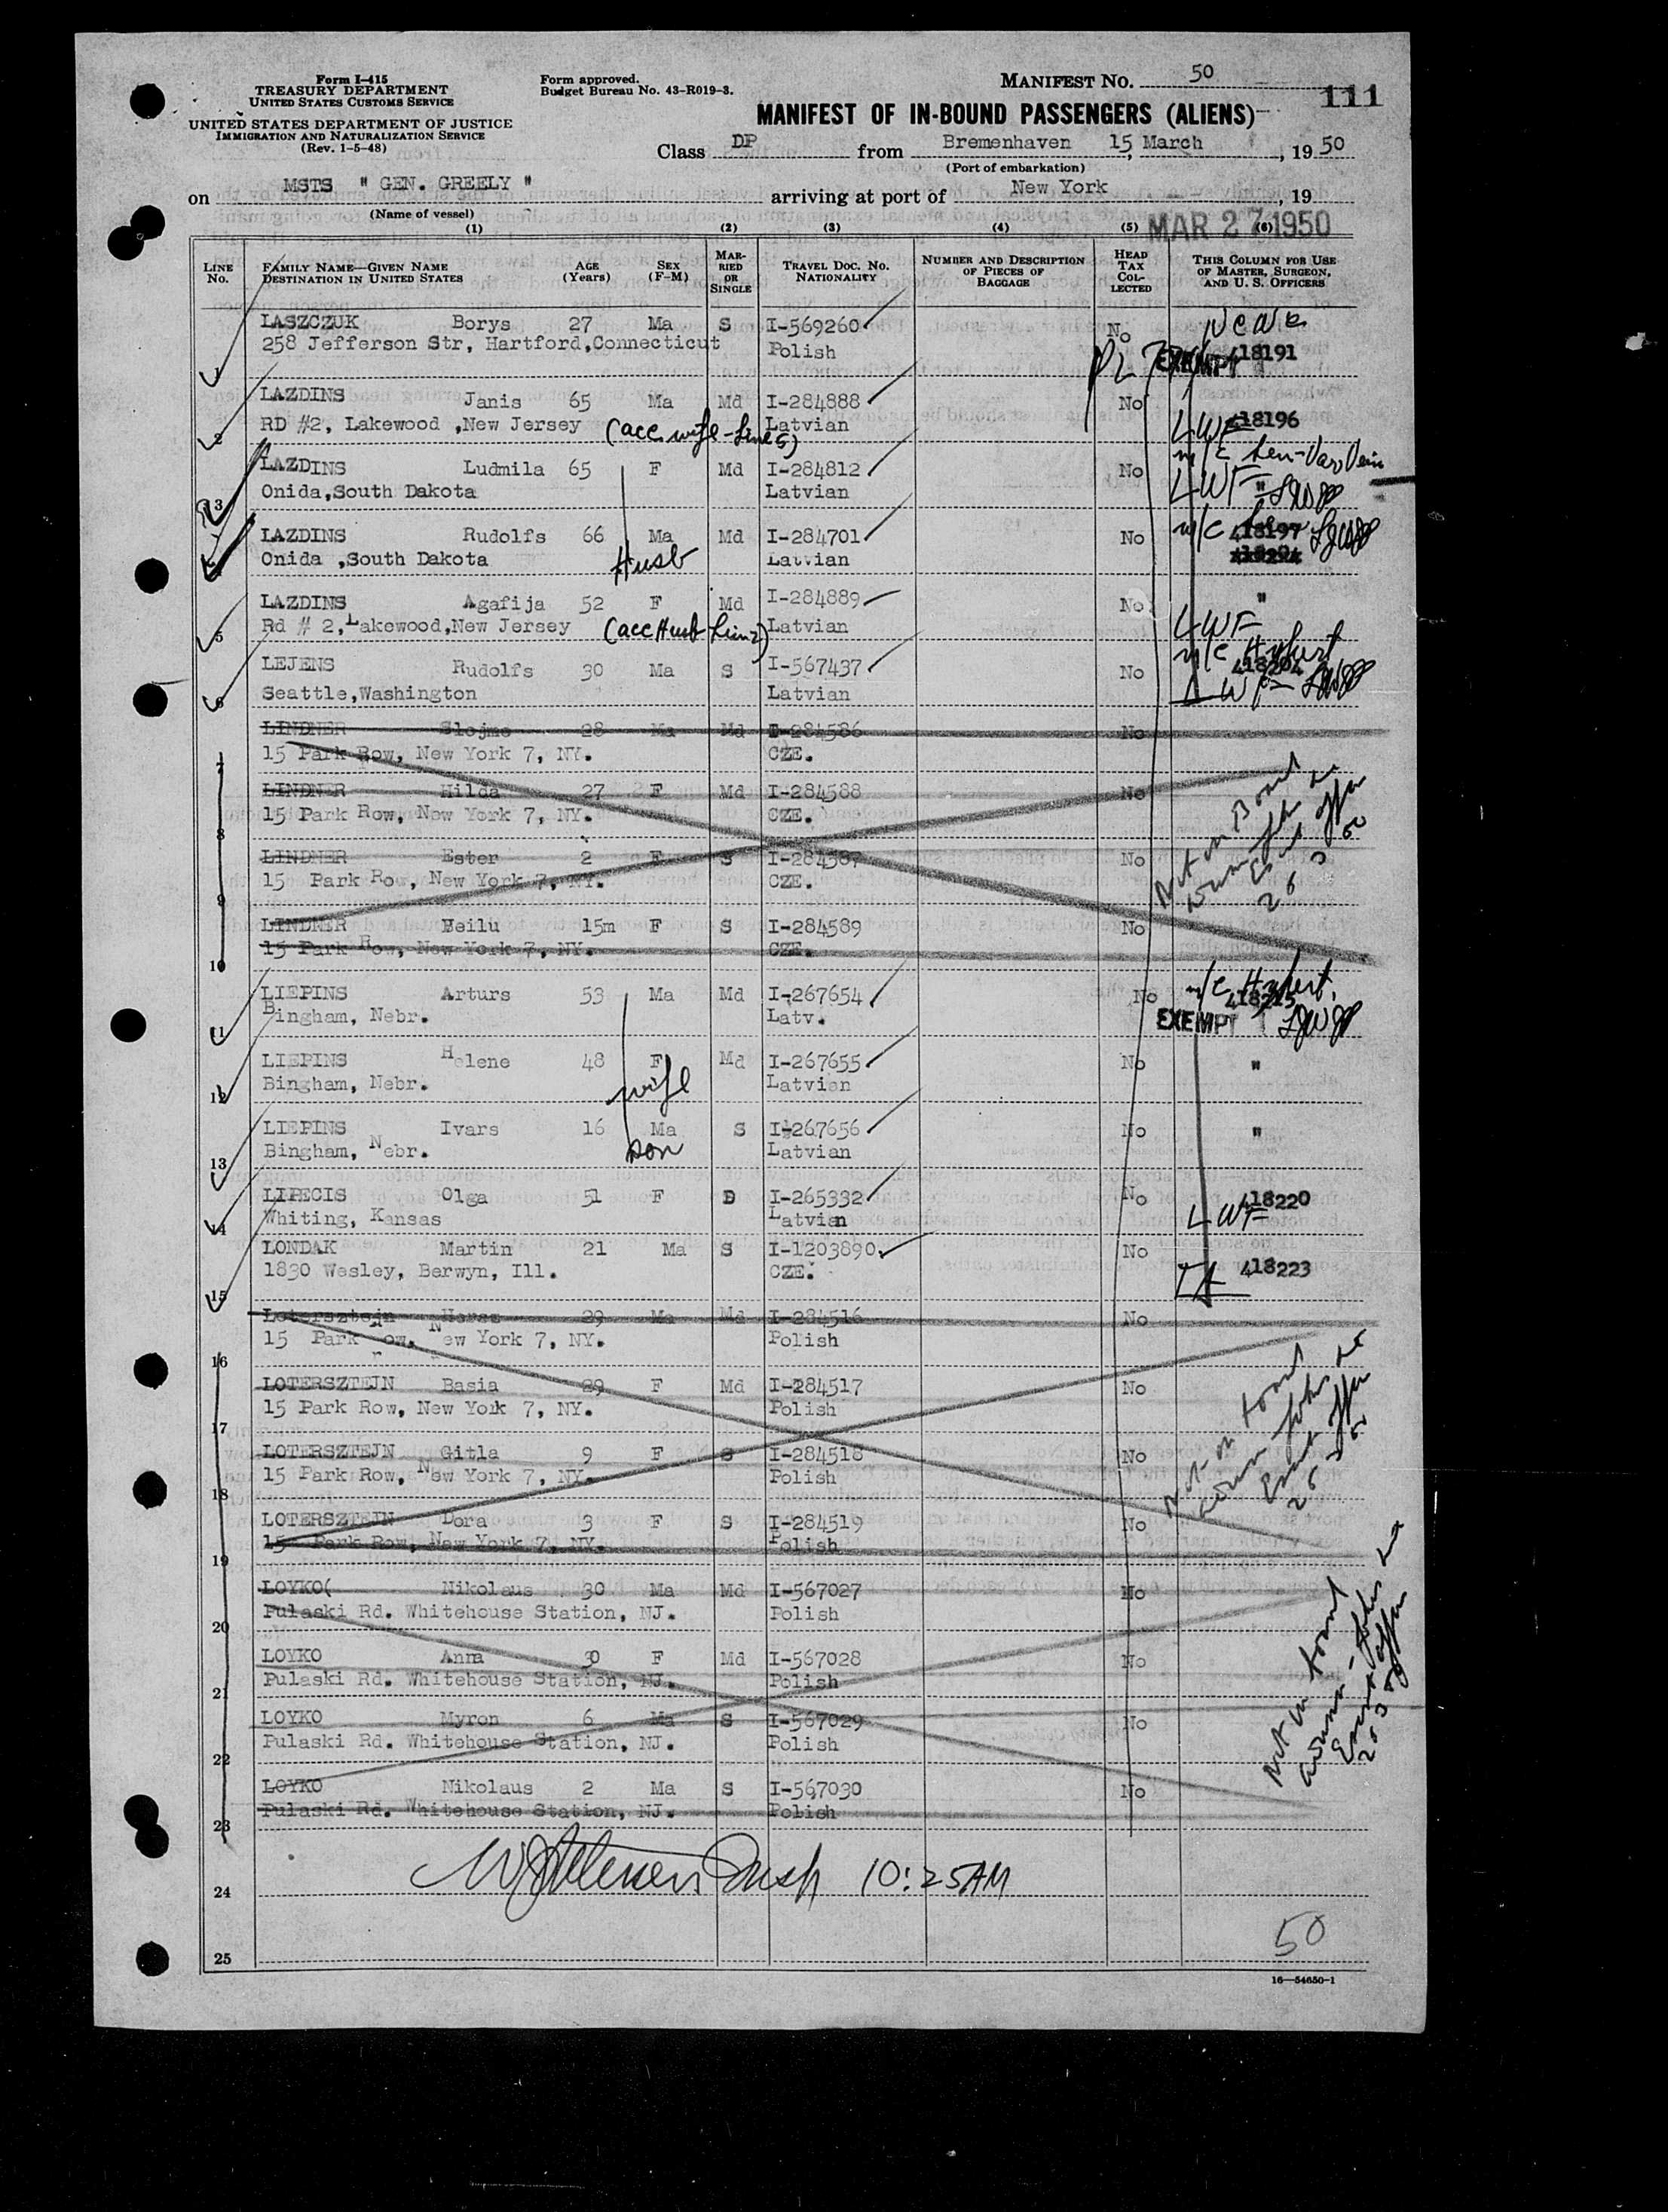 Form I-415
TREASURY DEPARTMENT
UNITED STATES CUSTOMS SERVICE
UNITED STATES DEPARTMENT OF JUSTICE
IMMIGRATION AND NATURALIZATION SERVICE
(Rev. 1-5-48)
Form approved.
Budget Bureau No. 43-R019-3.
MANIFEST No. 50
111
MANIFEST OF IN-BOUND PASSENGERS (ALIENS)
Class DP from Bremenhaven 15 March, 19 50
(Port of embarkation)
on MSTS "GEN. GREELY" arriving at port of New York, 19
(Name of vessel)
MAR 27 1950
(1) (2) (3) (4) (5) (6)
LINE No. FAMILY NAME—GIVEN NAME DESTINATION IN UNITED STATES AGE (Years) SEX (F-M) MARRIED OR SINGLE TRAVEL DOC. No. NATIONALITY NUMBER AND DESCRIPTION OF PIECES OF BAGGAGE HEAD TAX COLLECTED THIS COLUMN FOR USE OF MASTER, SURGEON, AND U. S. OFFICERS
LASZCZUK Borys 27 Ma S I-569260 No NCWC
1 258 Jefferson Str, Hartford,Connecticut Polish EXEMPT 418191
LAZDINS Janis 65 Ma Md I-284888 No 418196
2 RD #2, Lakewood ,New Jersey (acc wife - Line 5) Latvian LWF
LAZDINS Ludmila 65 F Md I-284812 No m/c Sen-Var Vein
3 Onida,South Dakota Latvian LWF "
LAZDINS Rudolfs 66 Ma Md I-284701 No m/c 418197
4 Onida ,South Dakota Husb Latvian
LAZDINS Agafija 52 F Md I-284889 No "
5 Rd # 2,Lakewood,New Jersey (acc Husb Line 2) Latvian LWF
LEJENS Rudolfs 30 Ma S I-567437 No m/c Hypert 418204
6 Seattle,Washington Latvian LWF
LINDNER Slojme 28 Ma Md I-284586 No
7 15 Park Row, New York 7, NY. CZE.
LINDNER Hilda 27 F Md I-284588 No
8 15 Park Row, New York 7, NY. CZE.
LINDNER Ester 2 F S I-284587 No
9 15 Park Row, New York 7, NY. CZE.
LINDNER Beilu 15m F S I-284589 No
10 15 Park Row, New York 7, NY. CZE.
Not on Board
26 3 50
LIEPINS Arturs 53 Ma Md I-267654 No m/c Hypert. 418215
11 Bingham, Nebr. Latv. EXEMPT
LIEPINS Helene 48 F Md I-267655 No "
12 Bingham, Nebr. wife Latvian
LIEPINS Ivars 16 Ma S I-267656 No "
13 Bingham, Nebr. son Latvian
LIPECIS Olga 51 F D I-265332 No 418220
14 Whiting, Kansas Latvian LWF
LONDAK Martin 21 Ma S I-1203890 No
15 1830 Wesley, Berwyn, Ill. CZE. 418223
Lotersztejn 29 Ma Md I-284516 No
16 15 Park Row, New York 7, NY. Polish
LOTERSZTEJN Basia 29 F Md I-284517 No
17 15 Park Row, New York 7, NY. Polish
LOTERSZTEJN Gitla 9 F S I-284518 No
18 15 Park Row, New York 7, NY. Polish
LOTERSZTEJN Dora 3 F S I-284519 No
19 15 Park Row, New York 7, NY. Polish
Not on board
26 3 50
LOYKO( Nikolaus 30 Ma Md I-567027 No
20 Pulaski Rd. Whitehouse Station, NJ. Polish
LOYKO Anna 30 F Md I-567028 No
21 Pulaski Rd. Whitehouse Station, NJ. Polish
LOYKO Myron 6 Ma S I-567029 No
22 Pulaski Rd. Whitehouse Station, NJ. Polish
LOYKO Nikolaus 2 Ma S I-567030 No
23 Pulaski Rd. Whitehouse Station, NJ. Polish
Not on board
24 10:25AM
50
25
16—54650-1